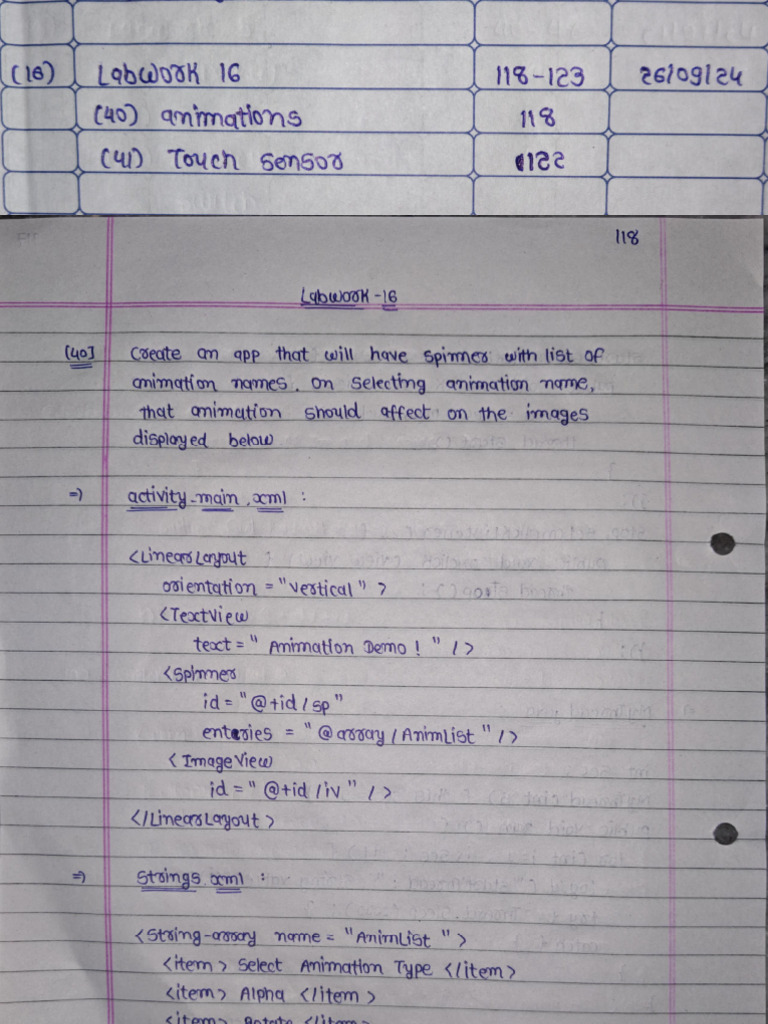 (16) Labwork 16 118-123 26/09/24
(40) animations 118
(41) Touch sensor 122
118
Labwork-16
(40] Create an app that will have spinner with list of
animation names. on selecting animation name,
that animation should affect on the images
displayed below
=) activity_main.xml :
<LinearLayout
orientation = "vertical" >
<TextView
text = " Animation Demo ! " />
<Spinner
id = "@+id/sp"
enteries = "@array/AnimList"/>
<ImageView
id = "@+id/iv" />
</LinearLayout>
=) Strings.xml :
<string-array name = "AnimList ">
<item> Select Animation Type </item>
<item> Alpha </item>
<item> Rotate </item>